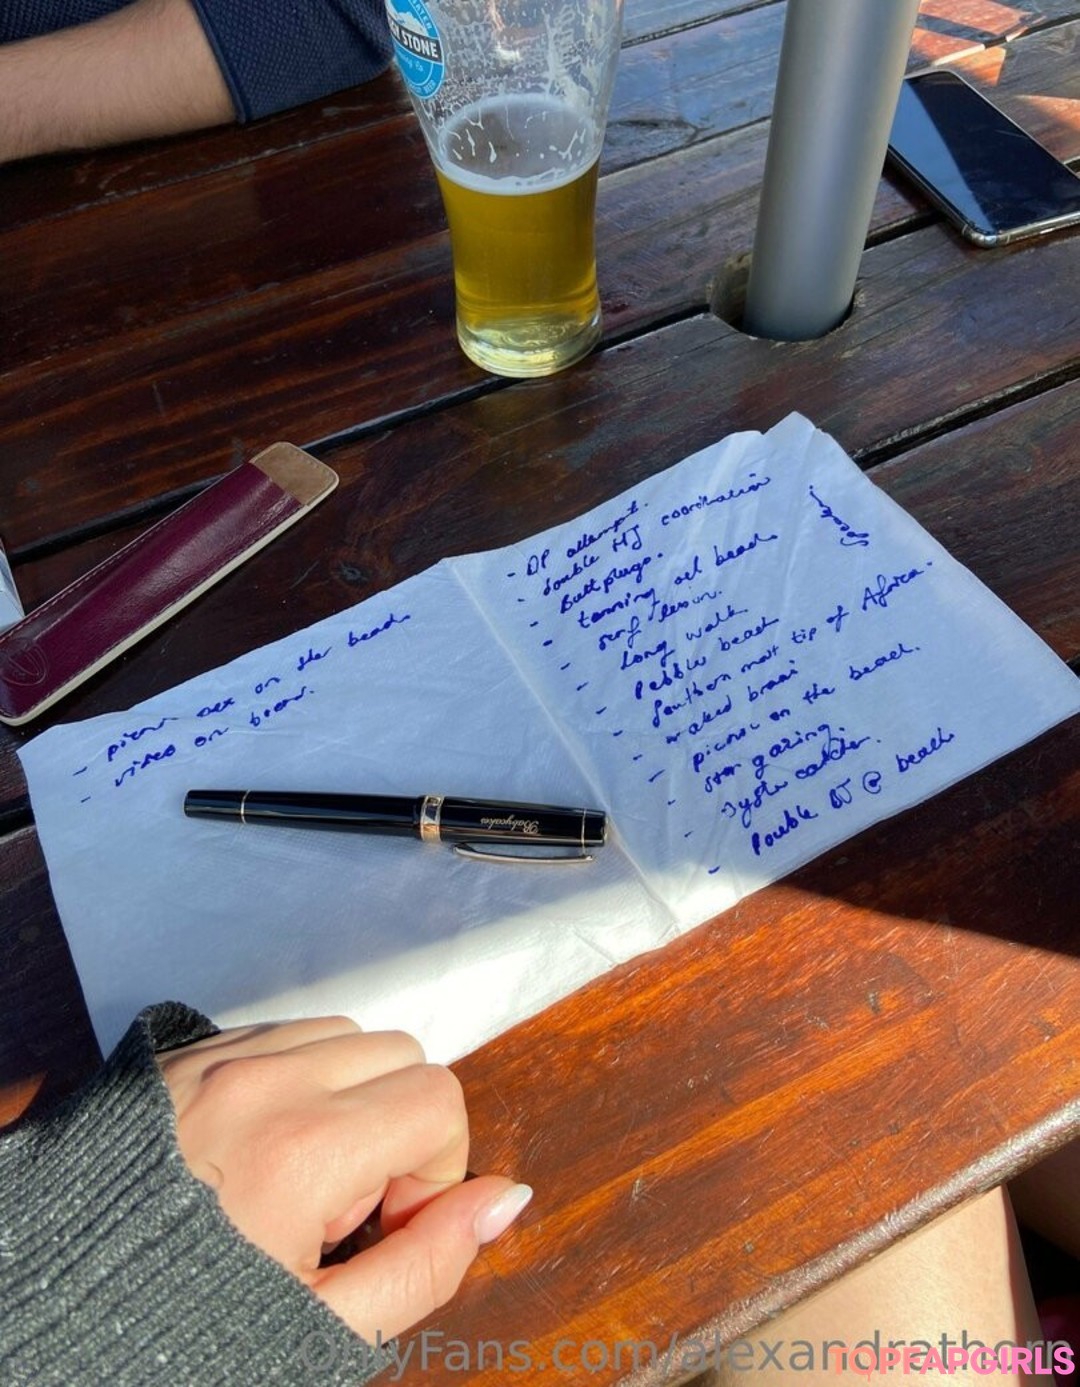 STONE
- picnic sex on the beach
- video on board.
- DP attempt.
- double HJ coordination
Buttplugs.
- tanning oil beach
- surf lesson.
- Long walk
- Pebble beach
- Southern most tip of Africa.
- naked braai
- picnic on the beach.
- star gazing
- Oyster catcher.
- Double BJ @ beach
Babycakes
OnlyFans.com/alexandrathorn
TOPFAPGIRLS